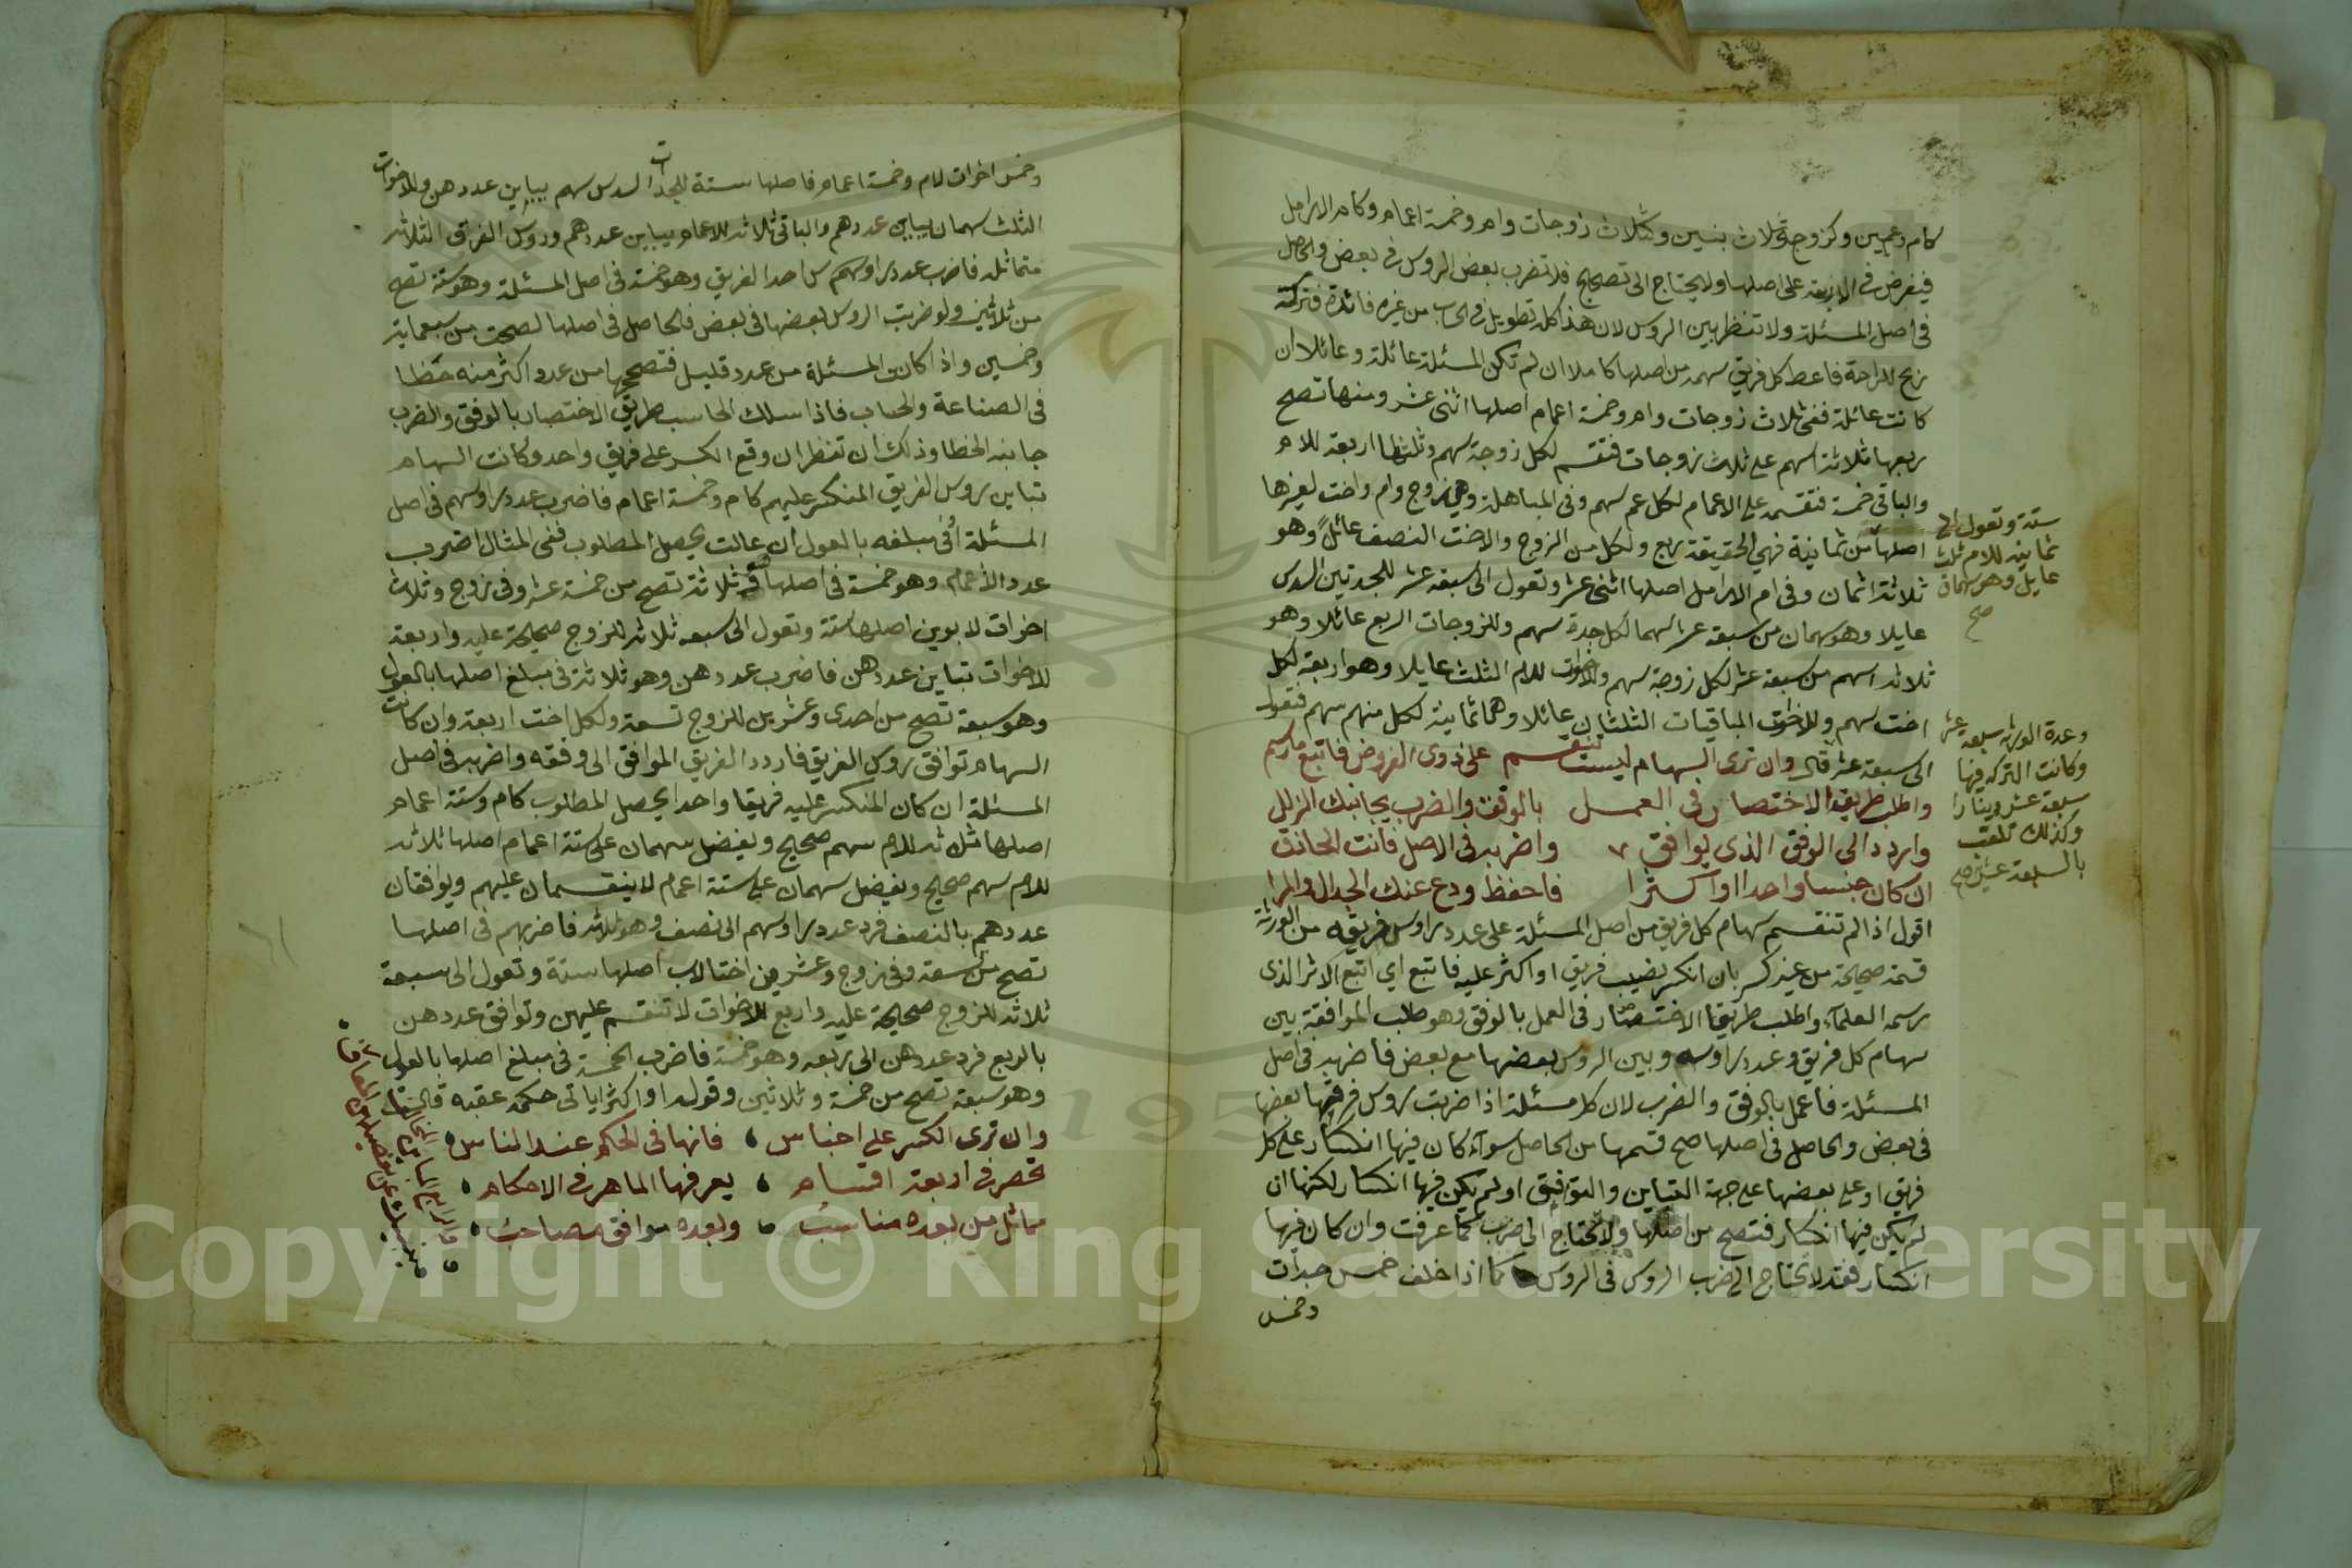 كام وعمين وكزوجة وثلاث بنين وكثلاث زوجات وام وخمسة اعمام وكام الارامل
فيفرض في الاربعة على اصلها ولا يحتاج الى تصحيح فلا تضرب بعض الروس في بعض والحاصل
في اصل المسئلة ولا تنظر بين الروس لان هذا كله تطويل في الحساب من غير فائدة فتركه
ربح للراحة فاعط كل فريق سهمه من اصلها كاملا ان لم تكن المسئلة عائلة وعائلا ان
كانت عائلة ففي ثلاث زوجات وام وخمسة اعمام اصلها اثنى عشر ومنها تصح
ربعها ثلاثة اسهم على ثلاث زوجات فتقسم لكل زوجة سهم وثلثها اربعة للام
والباقي خمسة فتقسم على الاعمام لكل عم سهم وفي المباهلة وهي زوج وام واخت لغيرها
اصلها من ثمانية فهي الحقيقة ربع ولكل من الزوج والاخت النصف عائلا وهو
ثلاثة اثمان وفي ام الارامل اصلها اثنى عشر وتعول الى سبعة عشر للجدتين السدس
عايلا وهو سهمان من سبعة عشر سهما لكل جدة سهم وللزوجات الربع عائلا وهو
ثلاثة اسهم من سبعة عشر لكل زوجة سهم وللاخوات للام الثلث عايلا وهو اربعة لكل
اخت سهم وللاخوات الباقيات الثلثان عائلا وهما ثمانية لكل منهم سهم فتعول
الى سبعة عشر قال وان ترى السهام ليست تنقسم على ذوى الفروض فاتبع ما رسم
واطلب طريق الاختصار في العمل بالوفق والضرب يجانبك الزلل
واردد الى الوفق الذي يوافق واضربه في الاصل فانت الحاذق
ان كان جنسا واحدا او اكثرا فاحفظ ودع عنك الجدال والمرا
اقول اذا لم تنقسم سهام كل فريق من اصل المسئلة على عدد رؤس فريقه من الورثة
قسمة صحيحة من غير كسر بان انكسر نصيب فريق او اكثر عليه فاتبع اي اتبع الاثر الذي
رسمه العلماء واطلب طريق الاختصار في العمل بالوفق وهو طلب الموافقة بين
سهام كل فريق وعدد راوسه وبين الروس بعضها مع بعض فاضربه في اصل
المسئلة فاعمل بالوفق والضرب لان كل مسئلة اذا ضربت روس فرقتها بعضها
في بعض والحاصل في اصلها صح قسمها من الحاصل سواء كان فيها انكسار على كل
فريق او على بعضها على جهة التباين والتوفيق او لم يكن فيها انكسار لكنها ان
لم يكن فيها انكسار فتصح من اصلها ولا تحتاج الى ضرب كما عرفت وان كان فيها
انكسار فقد لا تحتاج الى ضرب الروس في الروس كما اذا خلف خمس جدات
وخمس
ستة وتعول الى
ثمانية للام ثلث
عايل وهو سهمان
صح
وعدة الورثة سبعة عشر
وكانت التركة فيها
سبعة عشر دينارا
وكذلك تلقب
بالسبعة عشر صح
وخمس اخوات لام وخمسة اعمام فاصلها ستة للجدات السدس سهم يباين عددهن وللاخوات
الثلث سهمان يباين عددهم والباقي ثلاثة للاعمام يباين عددهم وروس الفرق الثلاثة
متماثلة فاضرب عدد راوسهم من احد الفريق وهو خمسة في اصل المسئلة وهو ستة تصح
من ثلاثين ولو ضربت الروس بعضها في بعض فالحاصل في اصلها لصحت من سبعماية
وخمسين واذا كان المسئلة من عدد قليل فتصححها من عدد اكثر منه خطا
في الصناعة والحساب فاذا سلك الحاسب طريق الاختصار بالوفق والضرب
جانبه الخطا وذلك ان تنظر ان وقع الكسر على فريق واحد وكانت السهام
تباين روس الفريق المنكسر عليهم كام وخمسة اعمام فاضرب عدد راوسهم في اصل
المسئلة أو في مبلغه بالعول ان عالت يحصل المطلوب ففي المثال اضرب
عدد الاعمام وهو خمسة في اصلها ثلاثة تصح من خمسة عشر وفي زوج وثلاث
اخوات لابوين اصلها ستة وتعول الى سبعه ثلاثة للزوج صحيحة عليه واربعة
للاخوات تباين عددهن فاضرب عددهن وهو ثلاثة في مبلغ اصلها بالعول
وهو سبعة تصح من احدى وعشرين للزوج تسعة ولكل اخت اربعة وان كانت
السهام توافق روس الفريق فاردد الفريق الموافق الى وفقه واضربه في اصل
المسئلة ان كان المنكسر عليه فريقا واحدا يحصل المطلوب كام وستة اعمام
اصلها ثلاثة للام سهم صحيح ويفضل سهمان على ستة اعمام اصلها ثلاثة
للام سهم صحيح ويفضل سهمان على ستة اعمام لا ينقسمان عليهم ويوافقان
عددهم بالنصف فرد عدد راوسهم الى نصف وهو ثلاثة فاضربهم في اصلها
تصح من تسعة وفي زوج وعشرين اختا لاب اصلها ستة وتعول الى سبعة
ثلاثة للزوج صحيحة عليه واربع للاخوات لا تنقسم عليهن وتوافق عددهن
بالربع فرد عددهن الى ربعه وهو خمسة فاضرب الخمسة في مبلغ اصلها بالعول
وهو سبعة تصح من خمسة وثلاثين وقوله او اكثر ياتي حكمه عقبه قال
وان ترى الكسر على اجناس فانها في الحكم عند الناس
تحصر في اربعة اقسام يعرفها الماهر في الاحكام
مماثل من بعده مناسب وبعده موافق مصاحب
والرابع المباين المخالف
ينبيك عن تفصيلهن العارف